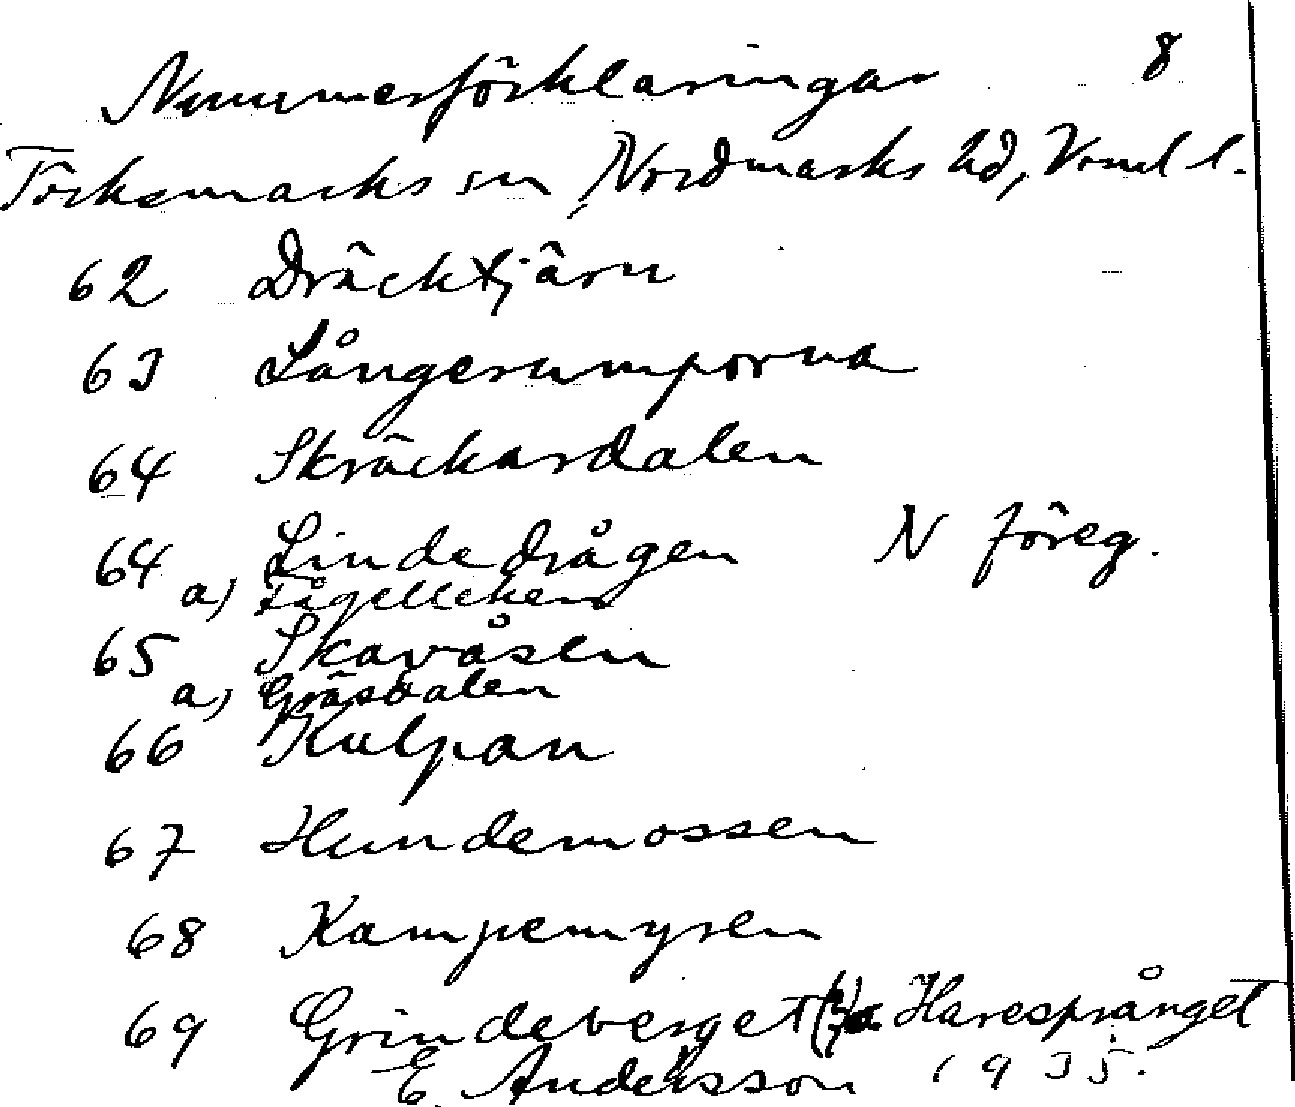 Nummerförklaringar 8
Töcksmarks sn, Nordmarks hd, Vrml l.
62 Dräcktjärn
63 Långerumporna
64 Skräckardalen
64 Lindedrågen N föreg.
a)
65 Skavåsen
a) Gräsdalen
66 Kulpan
67 Hundemossen
68 Kampemyren
69 Grindeberget Haresprånget
E. Andersson 1935.